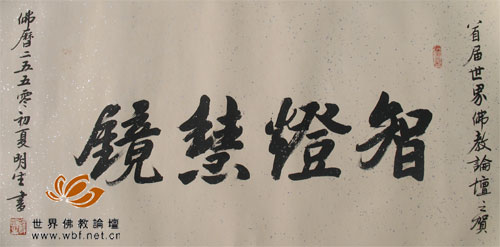 首届世界佛教論壇之賀
智燈慧鏡
佛曆二五五零初夏明生書
世界佛教論壇
www.wbf.net.cn